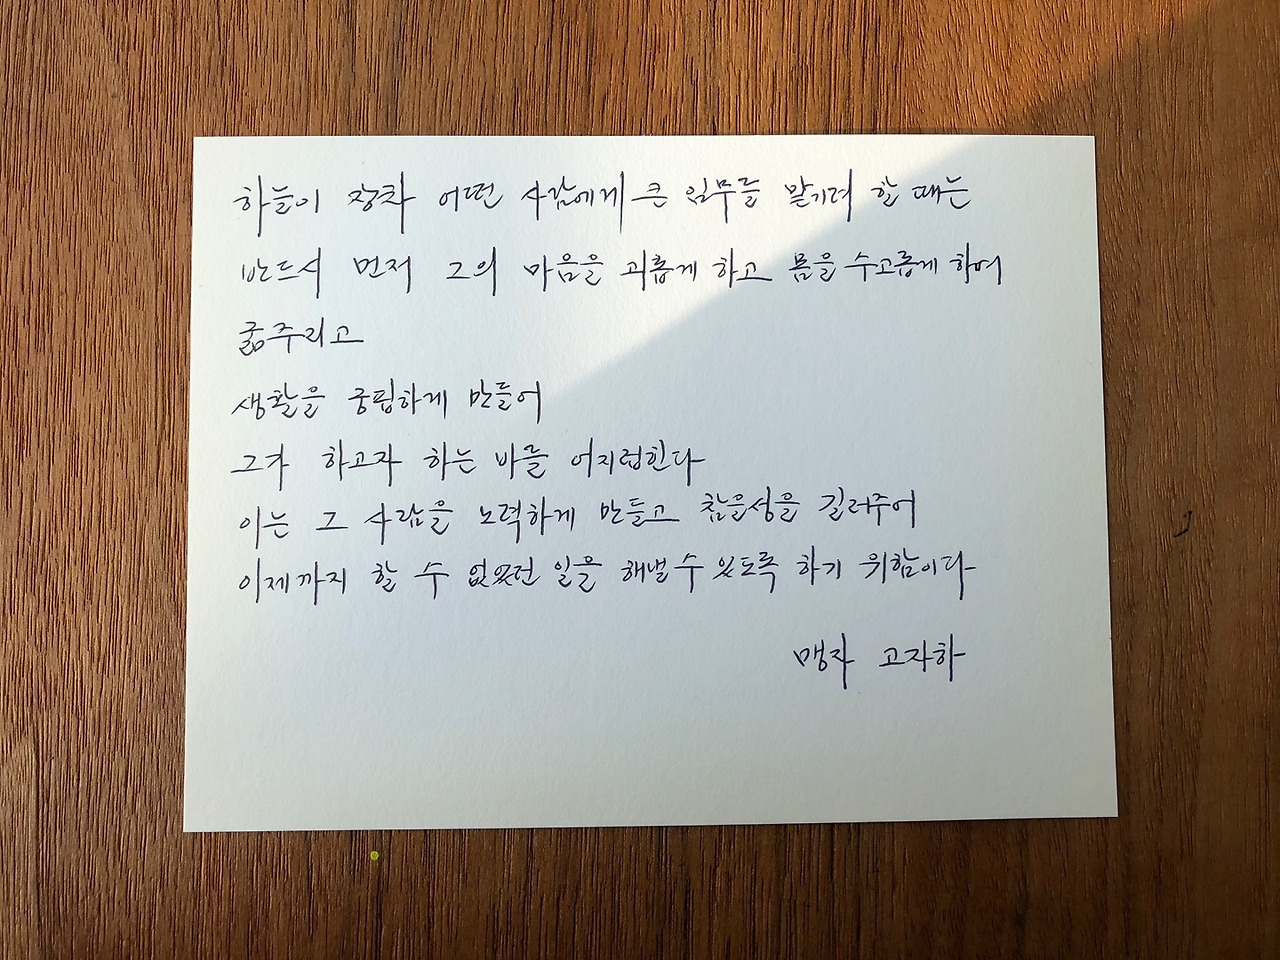 하늘이 장차 어떤 사람에게 큰 임무를 맡기려 할 때는
반드시 먼저 그의 마음을 괴롭게 하고 몸을 수고롭게 하여
굶주리고
생활을 궁핍하게 만들어
그가 하고자 하는 바를 어지럽힌다
이는 그 사람을 노력하게 만들고 참을성을 길러주어
이제까지 할 수 없었던 일을 해낼 수 있도록 하기 위함이다
맹자 고자하